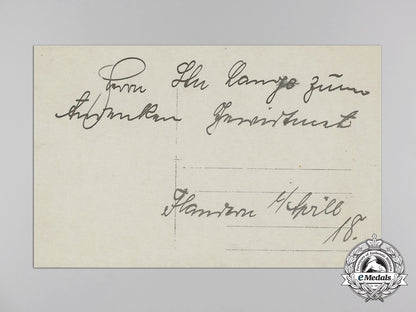 Herrn Ltn Lange zum
Andenken Gewidmet
Flandern April
18.
eMedals